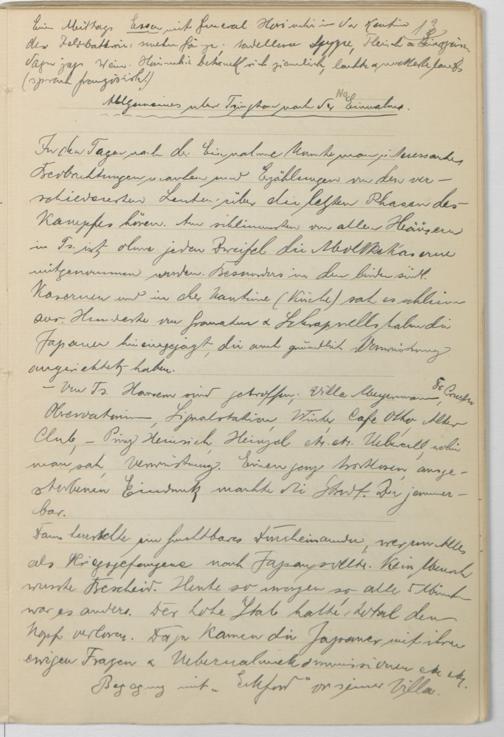 Ein Mittags Essen mit General Horiuchi in der Kantine 13
der Feldbattrie: mehr für je: tadellose Suppe, Fleisch
dazu sogar Wein. Horiuchi benahm sich ziemlich, lachte
(sprach französisch!)
Allgemeines über Tsingtau nach der Einnahme.
In den Tagen nach der Einnahme konnte man interessantes
Beobachtungen machen und Erzählungen von den ver-
schiedensten Leuten über die letzten Phasen des
Kampfes hören. Am schlimmsten von allen Häusern
in Ts. ist ohne jeden Zweifel die Moltkekaserne
mitgenommen worden. Besonders in den beiden südl.
Kasernen und in der Kantine (Küche) sah es schlimm
aus. Hunderte von Granaten & Schrapnells haben die
Japaner hineingejagt, die auch gründlich Verwüstung
angerichtet haben.
– Von Ts. Häusern sind getroffen: Villa
Observatorium, Signalstation, Winter, Cafe Otto, Alter
Club, – Prinz Heinrich, Heinzel etc. etc. Ueberall, wohin
man sah, Verwüstung. Einen ganz trostlosen, ausge-
storbenen Eindruck machte die Stadt. Der jammer-
bar.
Dann herrschte ein furchtbares Durcheinander, wer von Alles
als Kriegsgefangene nach Japan sollte. Kein Mensch
wusste Bescheid. Heute so morgen so alle 5 Minut
war es anders. Der hohe Stab hatte total den
Kopf verloren. Dazu kamen die Japaner mit ihren
ewigen Fragen & Uebernahmekommissionen etc. etc.
Begegnung mit „Eckford" vor seiner Villa.